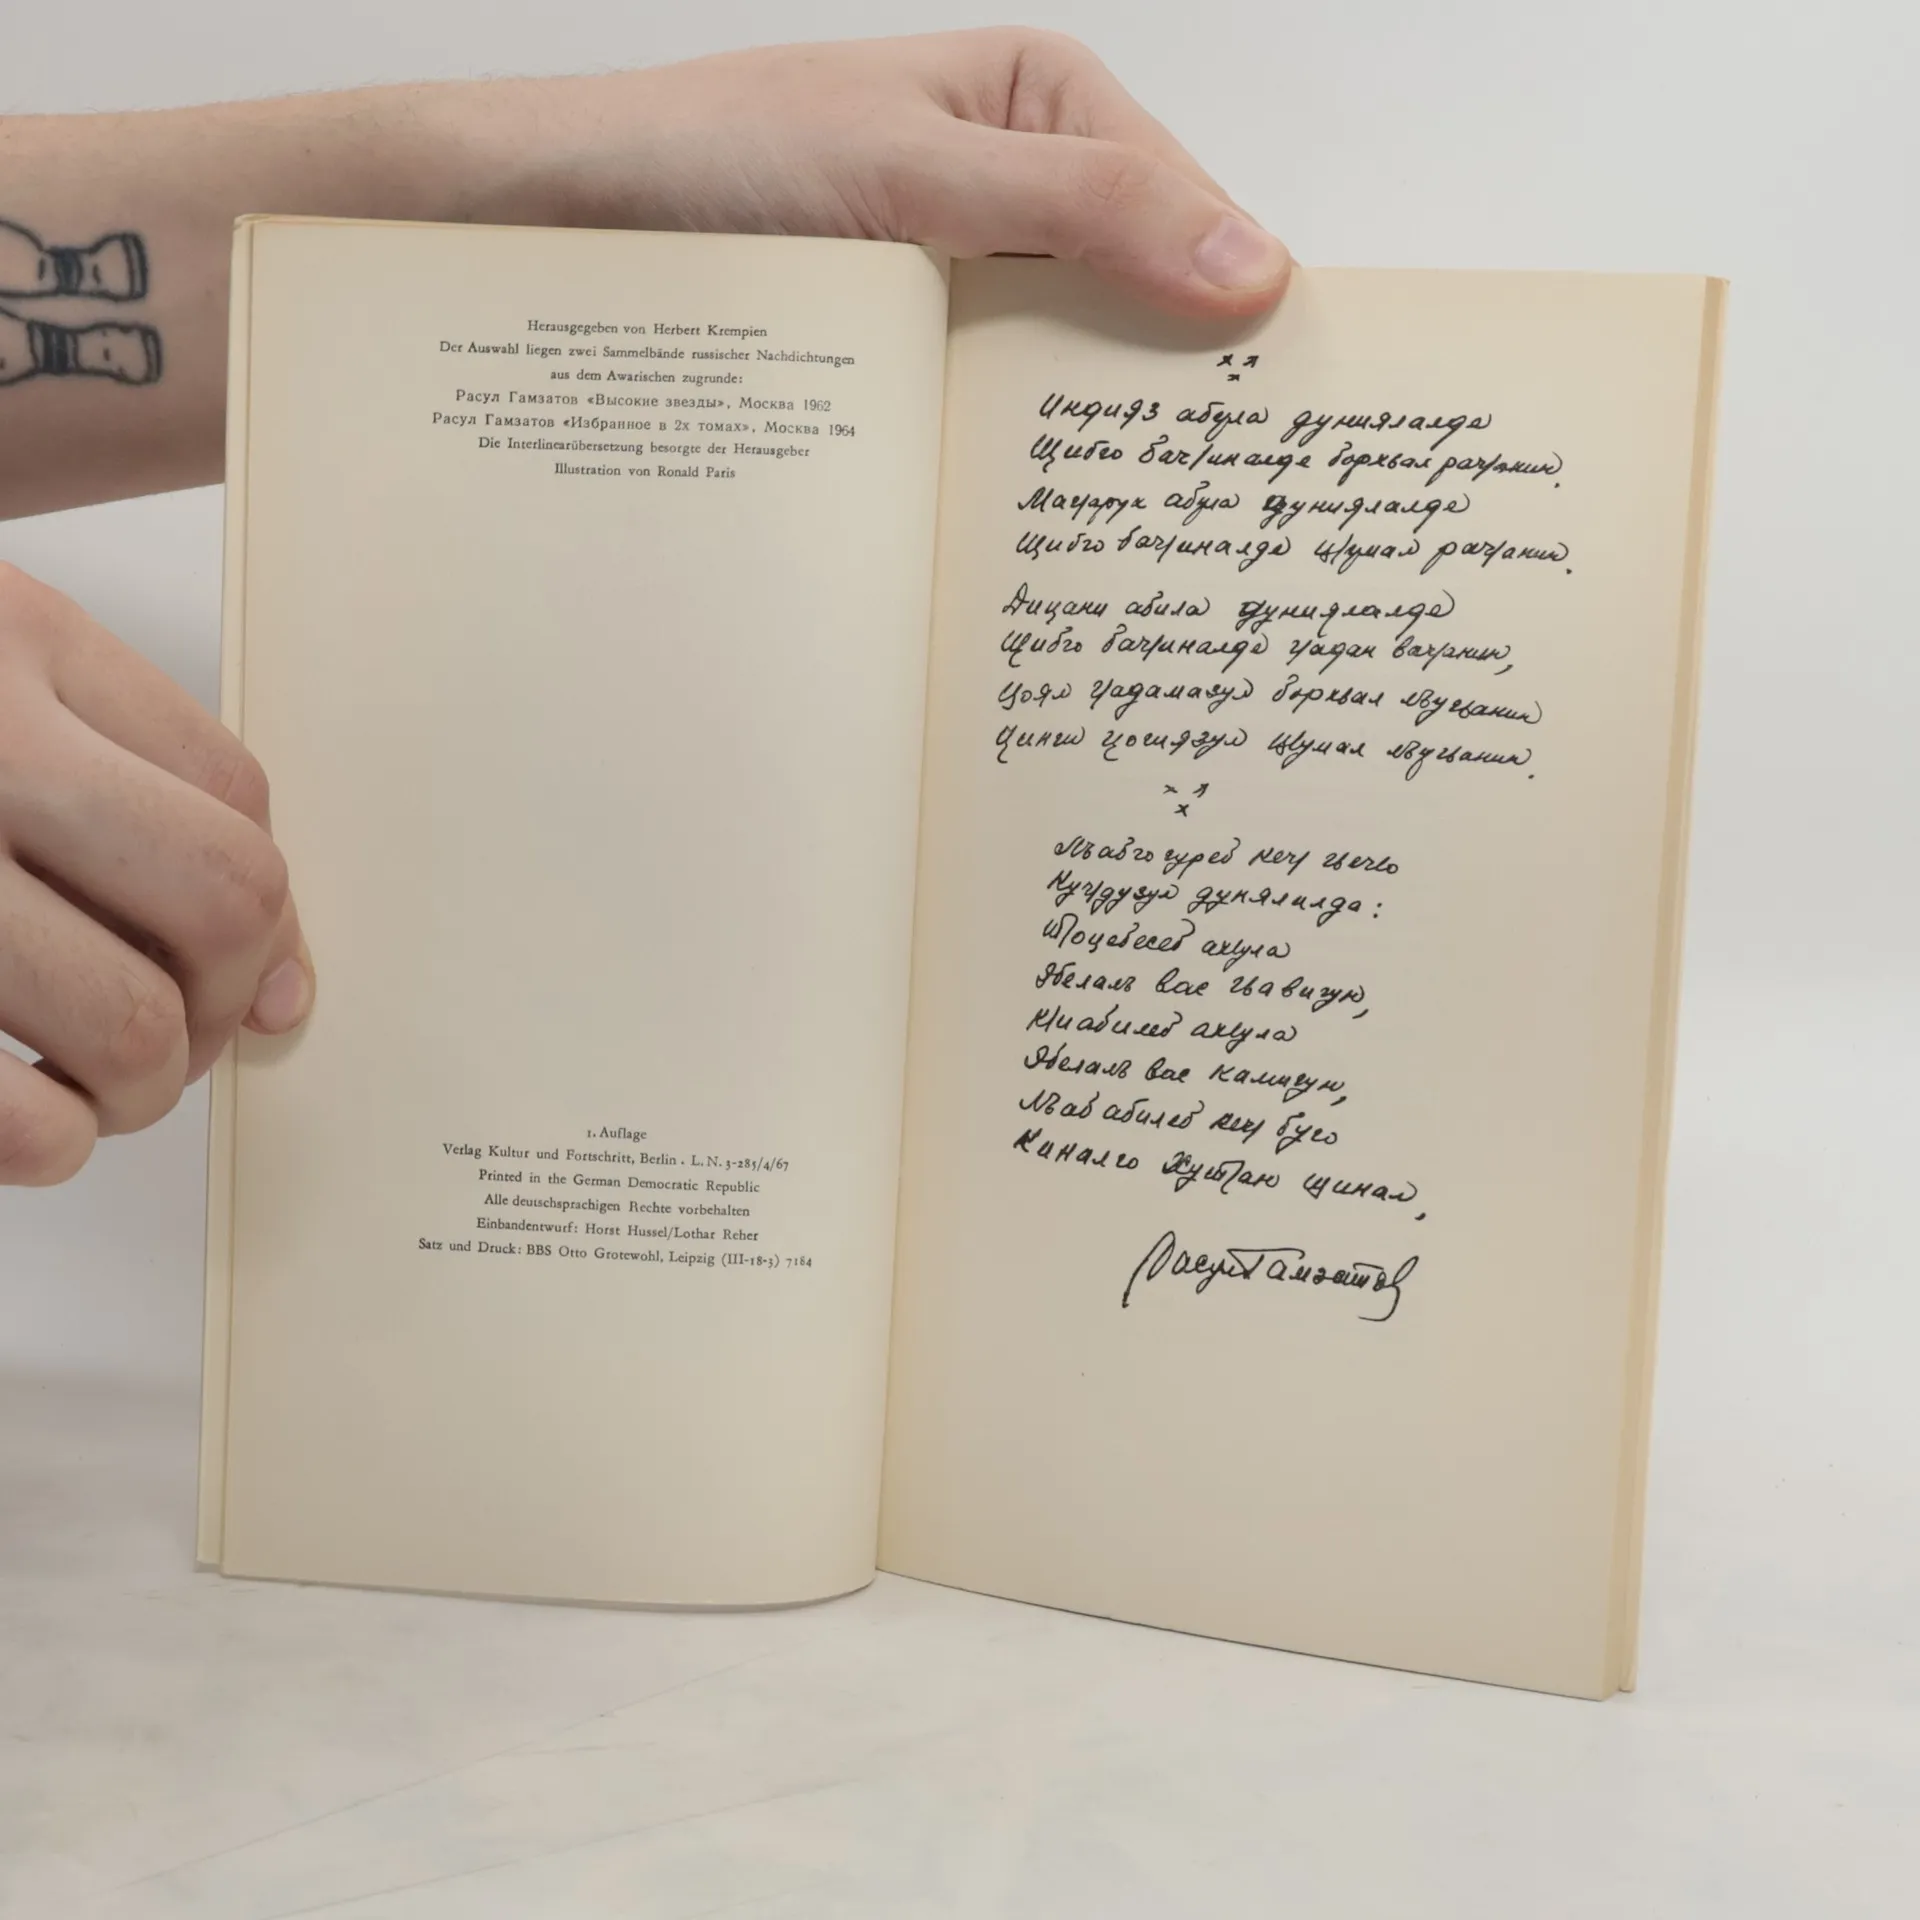 Herausgegeben von Herbert Krempien
Der Auswahl liegen zwei Sammelbände russischer Nachdichtungen
aus dem Awarischen zugrunde:
Расул Гамзатов «Высокие звезды», Москва 1962
Расул Гамзатов «Избранное в 2х томах», Москва 1964
Die Interlinearübersetzung besorgte der Herausgeber
Illustration von Ronald Paris
1. Auflage
Verlag Kultur und Fortschritt, Berlin . L. N. 3-285/4/67
Printed in the German Democratic Republic
Alle deutschsprachigen Rechte vorbehalten
Einbandentwurf: Horst Hussel/Lothar Reher
Satz und Druck: BBS Otto Grotewohl, Leipzig (III-18-3) 7184
Индияз абула дуниялалде
Щибго бачӀиналде борхьал рачӀанин.
абула дуниялалде
Щибго бачӀиналде цӀумал рачӀанин.
Дицани абила дуниялалде
Щибго бачӀиналде гӀадан вачӀанин,
Цоял гӀадамазул борхьал лъугьанин
Цинги цогиязул цӀумал лъугьанин.
Лъабго гуреб кечӀ гьечӀо
дунялалда:
ахӀула
Эбелалъ вас гьавигун,
КӀиабилеб ахӀула
Эбелалъ вас камигун,
Лъаб абилеб кечӀ буго
Киналго щинал,
Расул Гамзатов